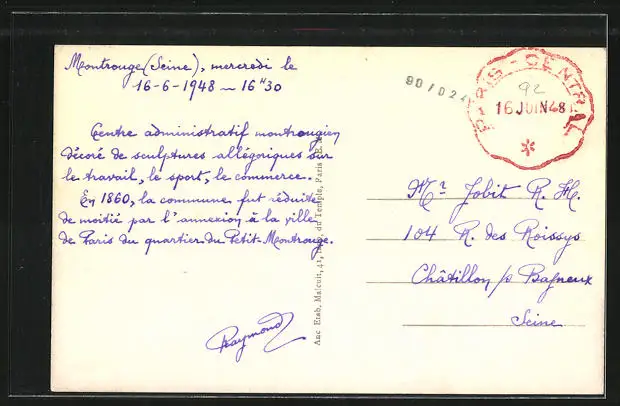 Montrouge (Seine), mercredi le
16-6-1948 ~ 16ʰ30
Centre administratif montrougien
décoré de sculptures allégoriques sur
le travail, le sport, le commerce.
En 1860, la commune fut réduite
de moitié par l'annexion à la ville
de Paris du quartier du Petit-Montrouge.
Raymond
Anc Etab. Malcuit, 41, du Temple, Paris
PARIS-CENTRAL
92
16 JUIN 48
Mr Jobit R. H.
104 R. des Roissys
Châtillon s/ Bagneux
Seine